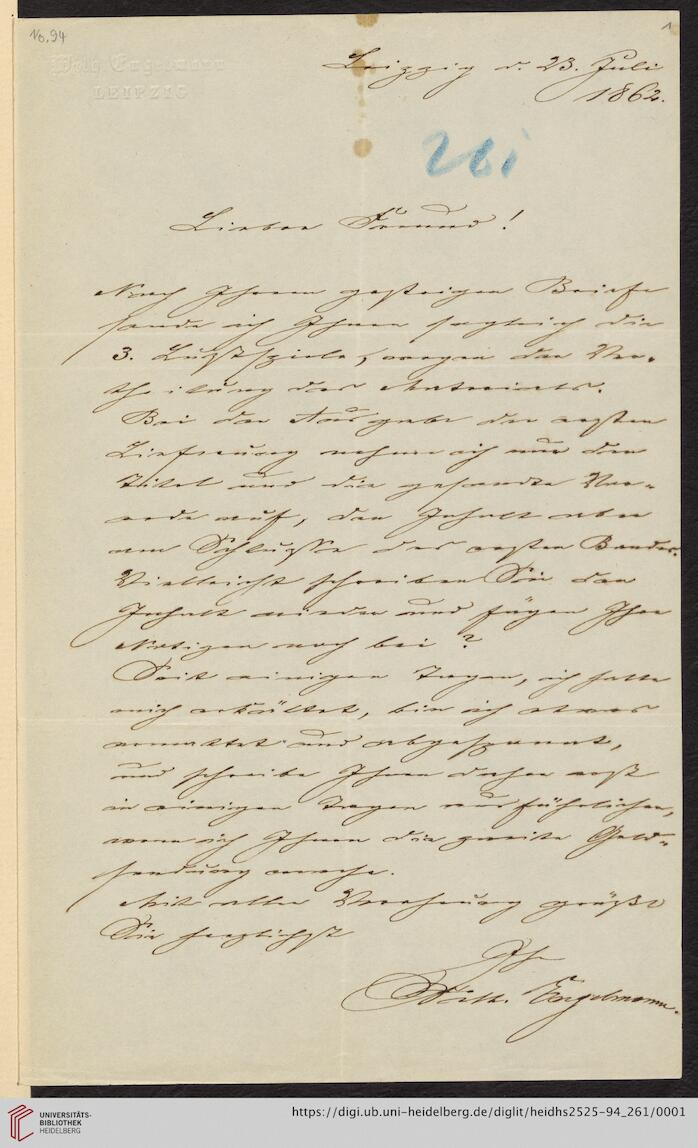 No. 94
1
Wilh. Engelmann
LEIPZIG
Leipzig d. 23. Juli
1862.
261
Lieber Freund!
Nach Ihrem gestrigen Briefe
sende ich Ihnen sogleich die
3. Lustspiele, wegen der Ver-
theilung des Materials.
Bei der Ausgabe der ersten
Lieferung nehme ich nur den
Titel und die gesandte Vor-
rede auf, den Inhalt aber
am Schlusse des ersten Bandes.
Vielleicht schreiben Sie den
Inhalt wieder und fügen Ihre
Notizen noch bei?
Seit einigen Tagen, ich hatte
mich erkältet, bin ich etwas
ermattet und abgespannt,
und schreibe Ihnen daher erst
in einigen Tagen ausführlicher,
wenn ich Ihnen die zweite Geld-
sendung mache.
Mit aller Verehrung grüßt
Sie herzlichst
Ihr
Wilh. Engelmann.
UNIVERSITÄTS-
BIBLIOTHEK
HEIDELBERG
https://digi.ub.uni-heidelberg.de/diglit/heidhs2525-94_261/0001